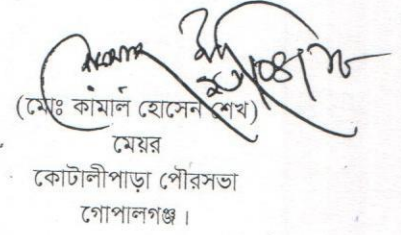 (মোঃ কামাল হোসেন শেখ)
মেয়র
কোটালীপাড়া পৌরসভা
গোপালগঞ্জ।